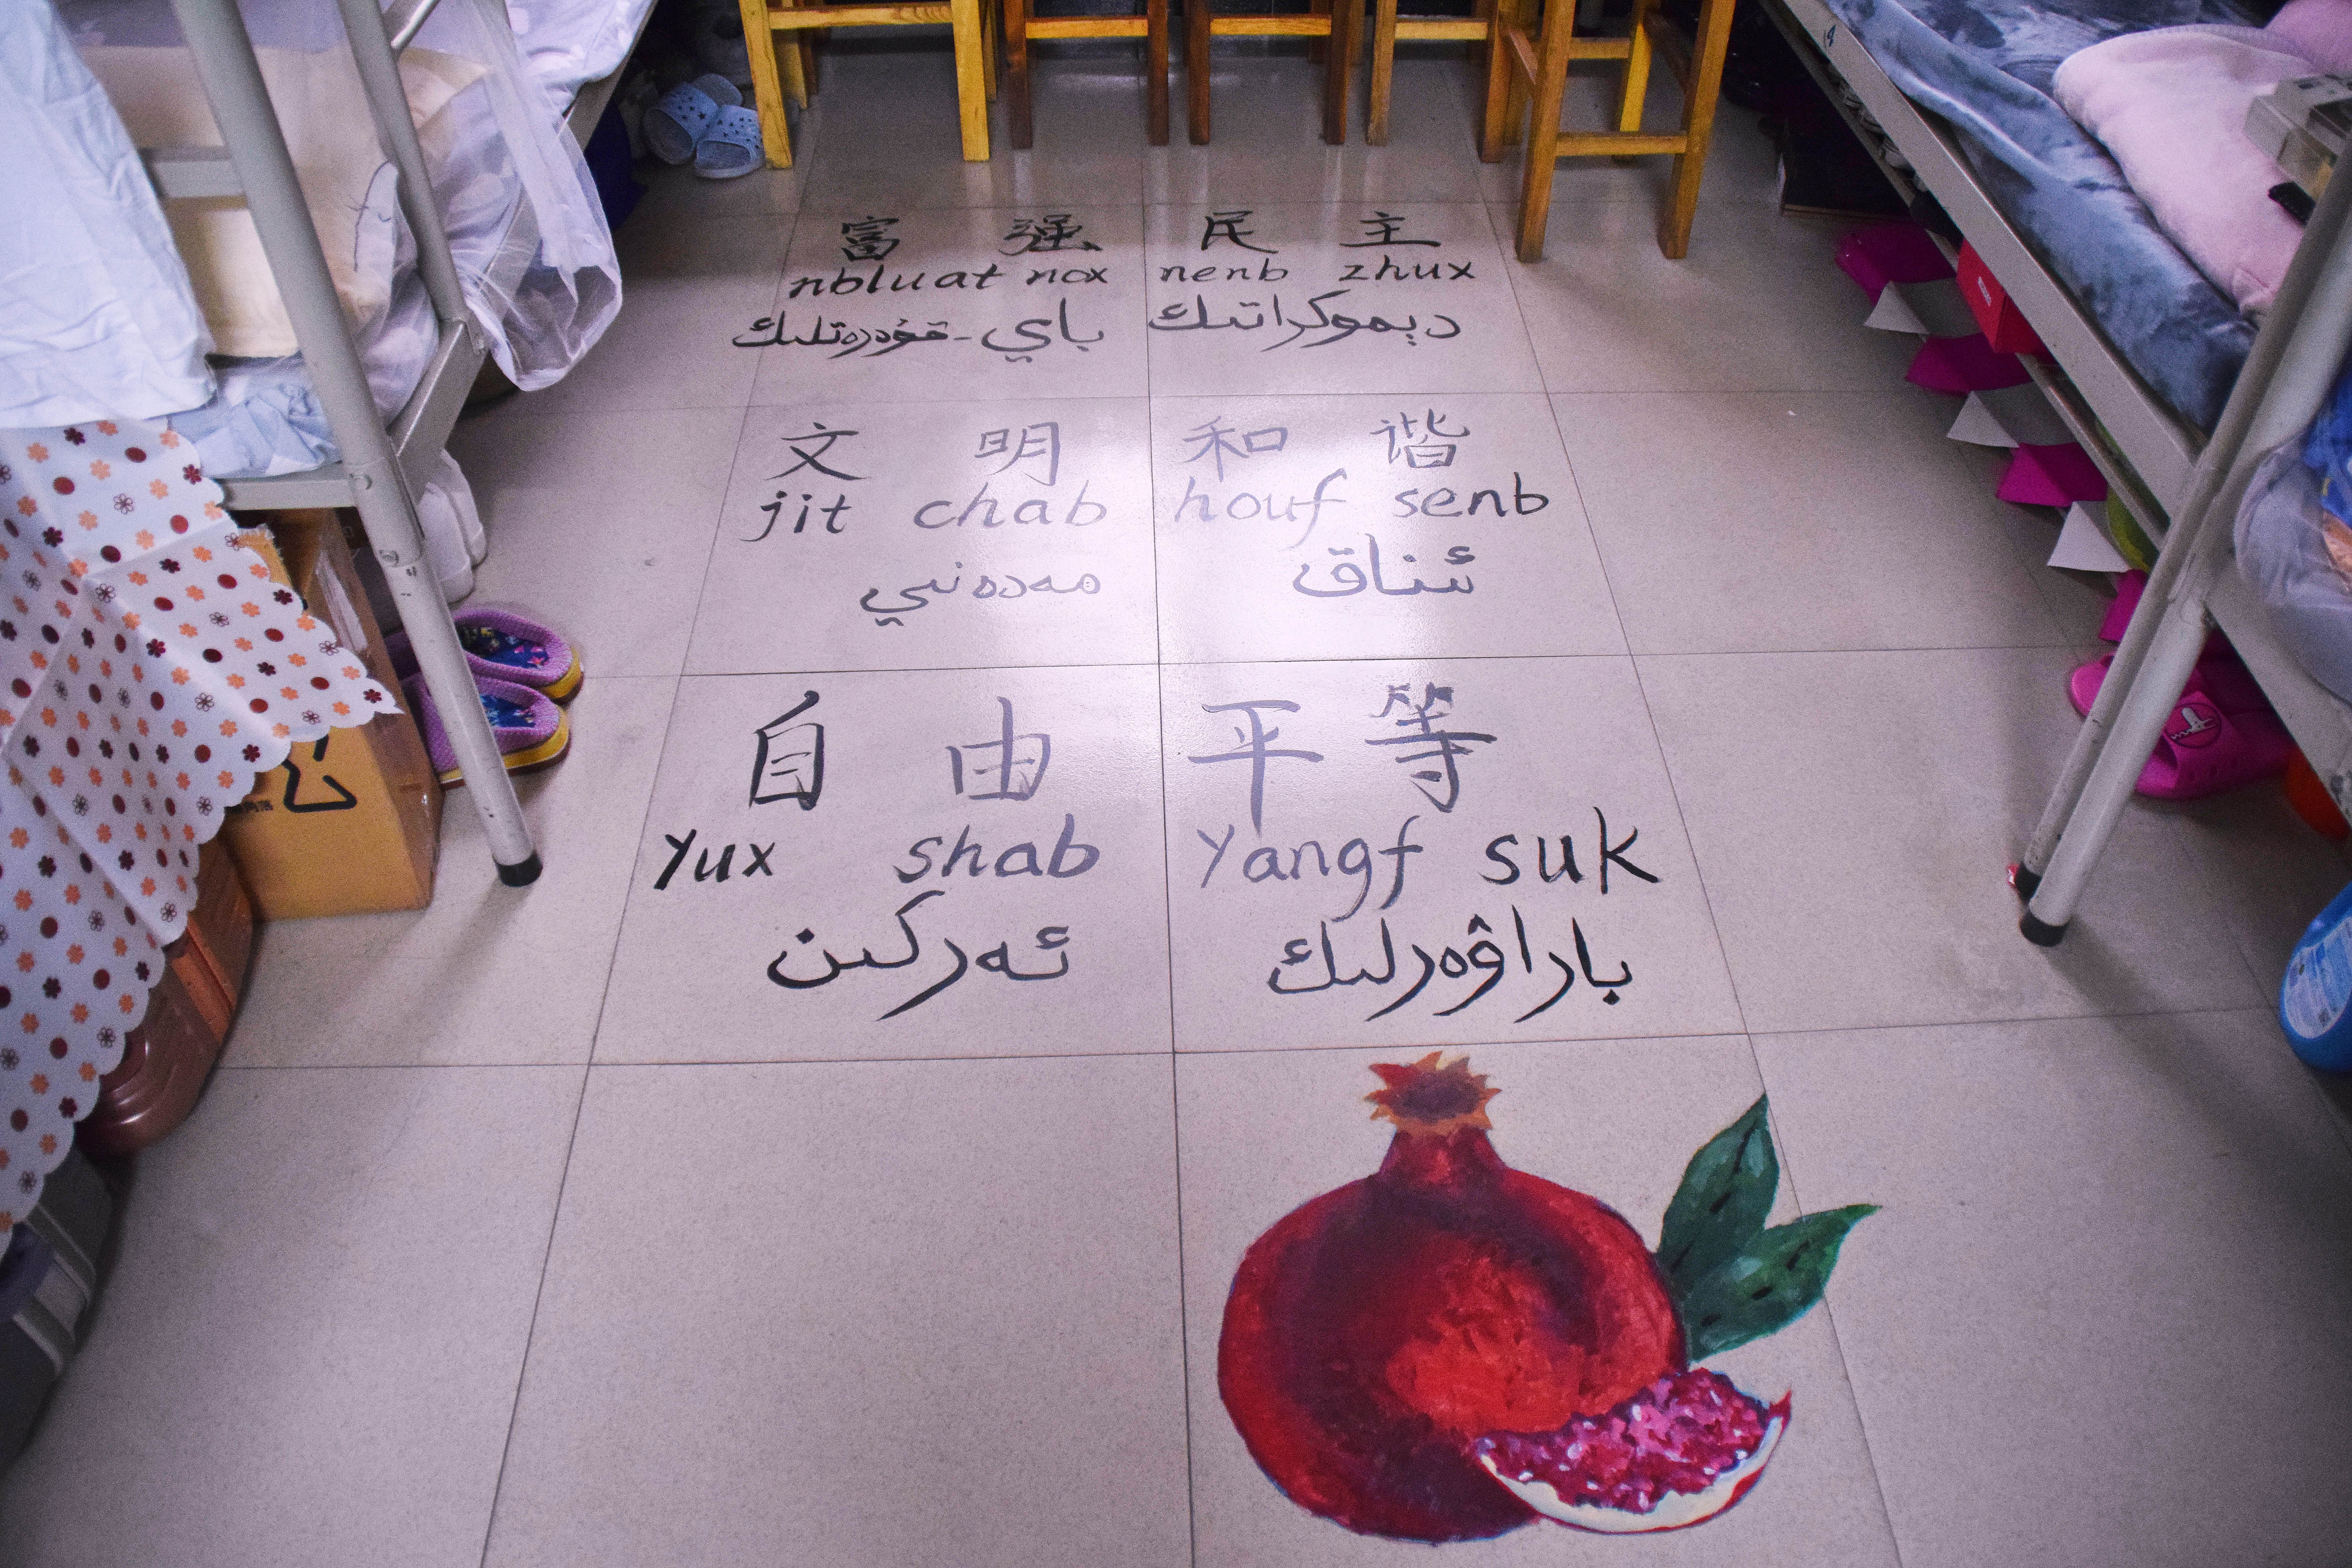 富强 民主
nbluat nox nenb zhux
باي-قۇدرەتلىك دېموكراتىك
文明 和谐
jit chab houf senb
مەدەنىي ئىناق
自由 平等
Yux shab Yangf suk
ئەركىن باراۋەرلىك